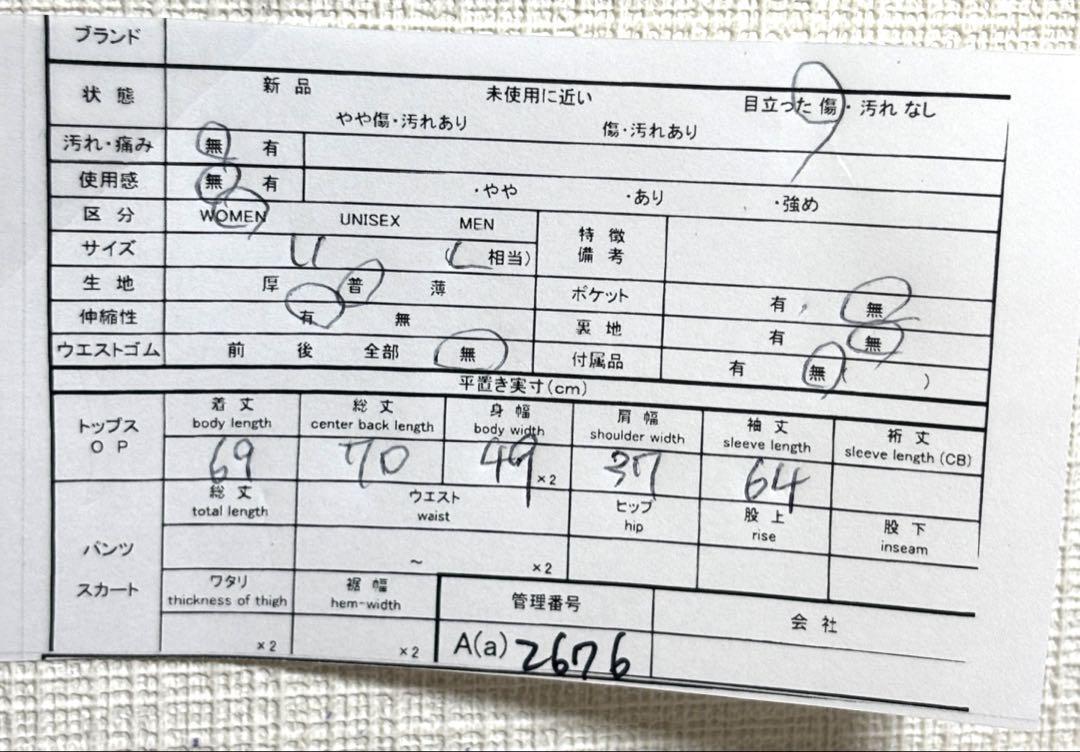 ブランド
状態 新品 未使用に近い 目立った傷・汚れなし
やや傷・汚れあり 傷・汚れあり
汚れ・痛み 無 有
使用感 無 有 ・やや ・あり ・強め
区分 WOMEN UNISEX MEN 特徴
備考
サイズ 相当)
生地 厚 普 薄 ポケット 有 無
伸縮性 有 無 裏地 有 無
ウエストゴム 前 後 全部 無 付属品 有 無( )
平置き実寸(cm)
トップス
OP
着丈 総丈 身幅 肩幅 袖丈 裄丈
body length center back length body width shoulder width sleeve length sleeve length (CB)
69 70 49 ×2 37 64
パンツ
スカート
総丈 ウエスト ヒップ 股上 股下
total length waist hip rise inseam
~ ×2
ワタリ 裾幅 管理番号 会社
thickness of thigh hem-width
×2 ×2 A(a) 2676